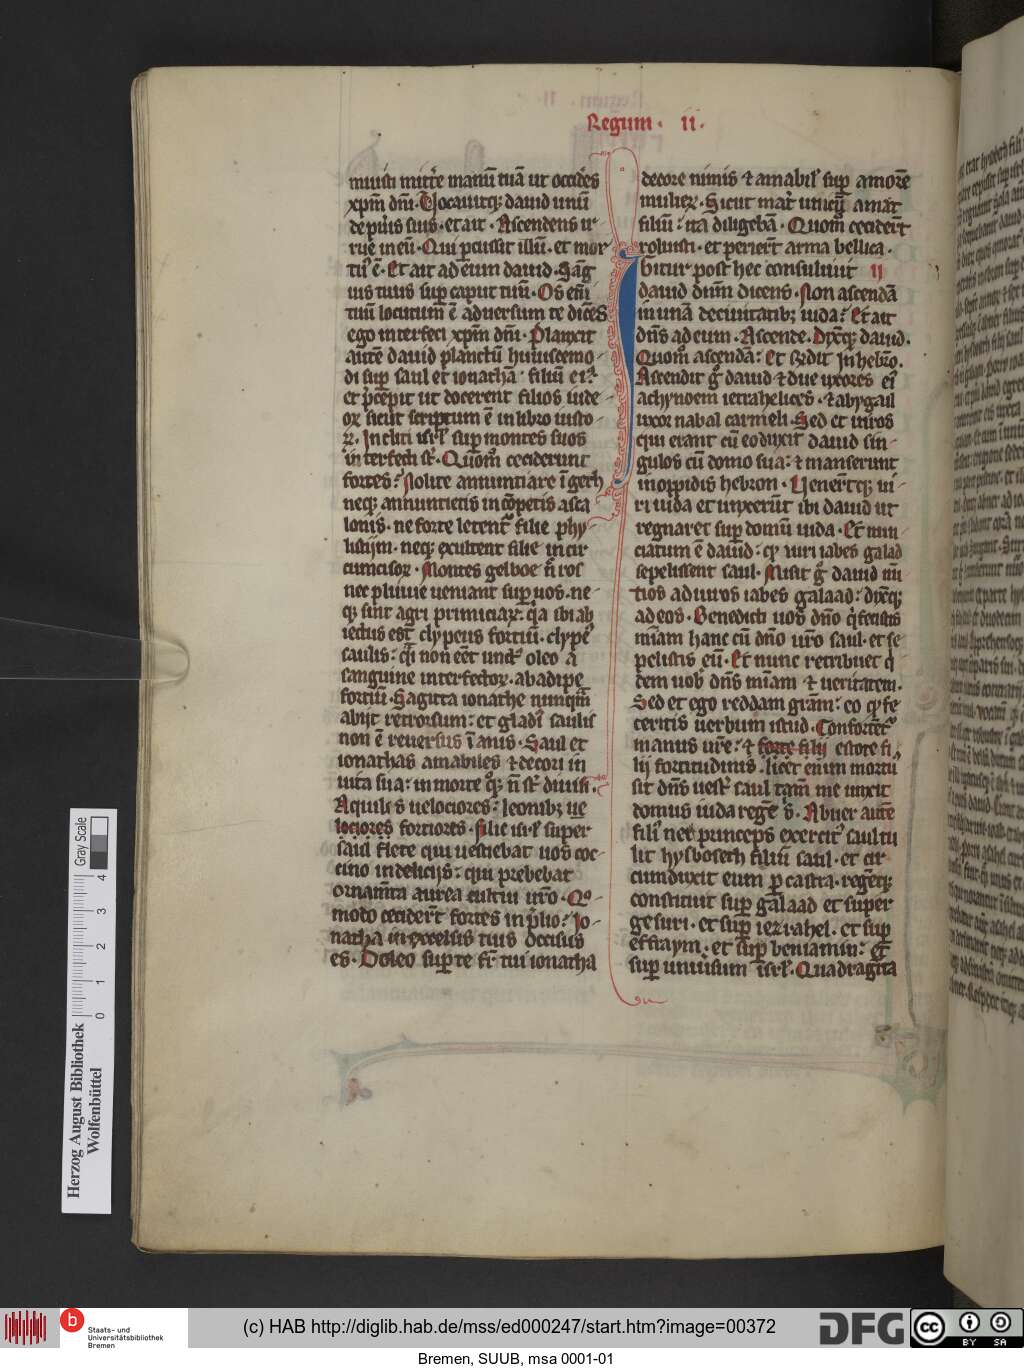 Regum . ii .
muisti mitte᷑ manū tuā ut occide᷑s
xp̄m dn̄i . Vocauitq; dauid unū
de pu̕is suis . et ait . Ascendens ir
rue in eū . Qui ꝑcussit illū . et mor
tu᷒ ē . Et ait ad eum dauid . Sāg
uis tuus suꝑ caput tuū . Os enī
tuū locutum ē aduersum te dicēs
ego interfeci xp̄m dn̄i . Planxit
autē dauid planctū huiuscemo-
di suꝑ saul et ionathā filiū ei᷒ .
et p̄cepit ut docerent filios iude-
oꝝ sicut scriptum ē in libro iusto
ꝝ . Incliti isr̄l suꝑ montes suos
interfecti st̄ . Quom̄ ceciderunt
fortes : Nolite annuntiare ī geth
neq; annuntietis in cōpetis asca
lonis . ne forte letent᷑ filie phy-
listijm . neq; exultent filie incir
cumcisoꝝ . Montes gelboe n̄ ros
nec pluuie ueniant suꝑ uos . ne-
q; sint agri primiciaꝝ . q̄a ibi ab
iectus est clypeus fortiū . clype᷒
saulis : q̄i non eēt unct᷒ oleo A
sanguine interfectoꝝ . ab adipe
fortiū . Sagitta ionathe nunqm̄
abijt retrorsum : et gladi᷒ saulis
non ē reuersus ī anis . Saul et
ionathas amabiles ⁊ decori in
uita sua : in morte qͦ; n̄ st̄ diuisi .
Aquilis uelociores : leonib; ue
lociores fortiores . filie isr̄l super
saul flete qui uestiebat uos coc-
cino in delicijs : qui prebebat
ornam̄ta aurea cultui ur̄o . Qͦ-
modo cecider̄t fortes in p̄lio : Jo-
natha in excelsis tuis occisus
es . Doleo suꝑ te fr̄ mi ionatha
decore nimis ⁊ amabil᷒ suꝑ amorē
mulieꝝ . Sicut mat᷑ unicū amat
filiū : ita diligebā . Quom̄ cecider̄t
robusti . et perier̄t arma bellica .
bitur post hec consuluit II
dauid dn̄m dicens . Non ascendā
in unā de ciuitatib; iuda : Et ait
dn̄s ad eum . Ascende . Dix̄q; dauid .
Quom̄ ascendā : Et r̄ndit In hebrō .
Ascendit ḡ dauid ⁊ due uxores ei᷒
achynoem iezrahelites . ⁊ abygail
uxor nabal carmeli . Sed et uiros
qui erant cū eo duxit dauid sin-
gulos cū domo sua : ⁊ manserunt
in oppidis hebron . Uener̄tq; ui-
ri iuda et unxerūt ibi dauid ut
regnaret suꝑ domū iuda . Et nun
ciatum ē dauid : qꝫ uiri iabes galad
sepelissent saul . Misit ḡ dauid nū
tios ad uiros iabes galaad : dix̄q;
ad eos . Benedicti uos dn̄o q̄ fecistis
miām hanc cū dn̄o ur̄o saul . et se
pelistis eū . Et nunc retribuet q̄
dem uob᷒ dn̄s miām ⁊ ueritatem .
Sed et ego reddam gram̄ : eo qꝫ fe
ceritis uerbum istud . Confortēt᷑
manus ur̄e : ⁊ forte filij estote fi
lij fortitudinis . licet enim mortu᷒
sit dn̄s uest̄ saul tam̄ me unxit
domus iuda regē s̄ . Abner autē
fili᷒ ner princeps exercit᷒ saul tu
lit hysboseth filiū saul . et cir
cumduxit eum ꝑ castra . regēq;
constituit suꝑ galaad et super
gesuri . et suꝑ iezrahel . et suꝑ
effraym . et suꝑ beniamin : Et
suꝑ uniu̕sum isr̄l . Quadraginta
Gray Scale
0 1 2 3 4
Herzog August Bibliothek
Wolfenbüttel
b
Staats- und
Universitätsbibliothek
Bremen
(c) HAB http://diglib.hab.de/mss/ed000247/start.htm?image=00372
DFG
cc BY SA
Bremen, SUUB, msa 0001-01